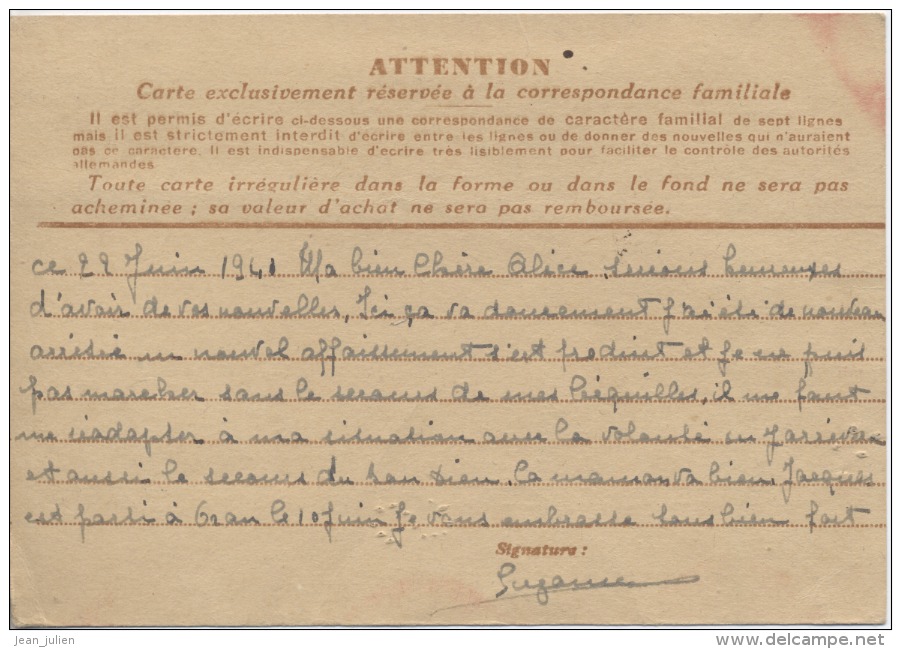 ATTENTION
Carte exclusivement réservée à la correspondance familiale
Il est permis d'écrire ci-dessous une correspondance de caractère familial de sept lignes
mais il est strictement interdit d'écrire entre les lignes ou de donner des nouvelles qui n'auraient
pas ce caractère. Il est indispensable d'écrire très lisiblement pour faciliter le contrôle des autorités
allemandes
Toute carte irrégulière dans la forme ou dans le fond ne sera pas
acheminée ; sa valeur d'achat ne sera pas remboursée.
ce 22 Juin 1941 Ma bien Chère Alice heureuses
d'avoir de vos nouvelles, Ici ça va doucement j'ai été de nouveau
arrêtée un nouvel affaissement s'est produit et je ne puis
pas marcher sans le secours de mes béquilles, il me faut
me réadapter à ma situation avec la volonté
et aussi le secours du bon Dieu. La maman va bien Jacques
est parti à Oran le 10 juin Je vous embrasse tous bien fort
Signature :
Suzanne
jean_julien
delcampe.net